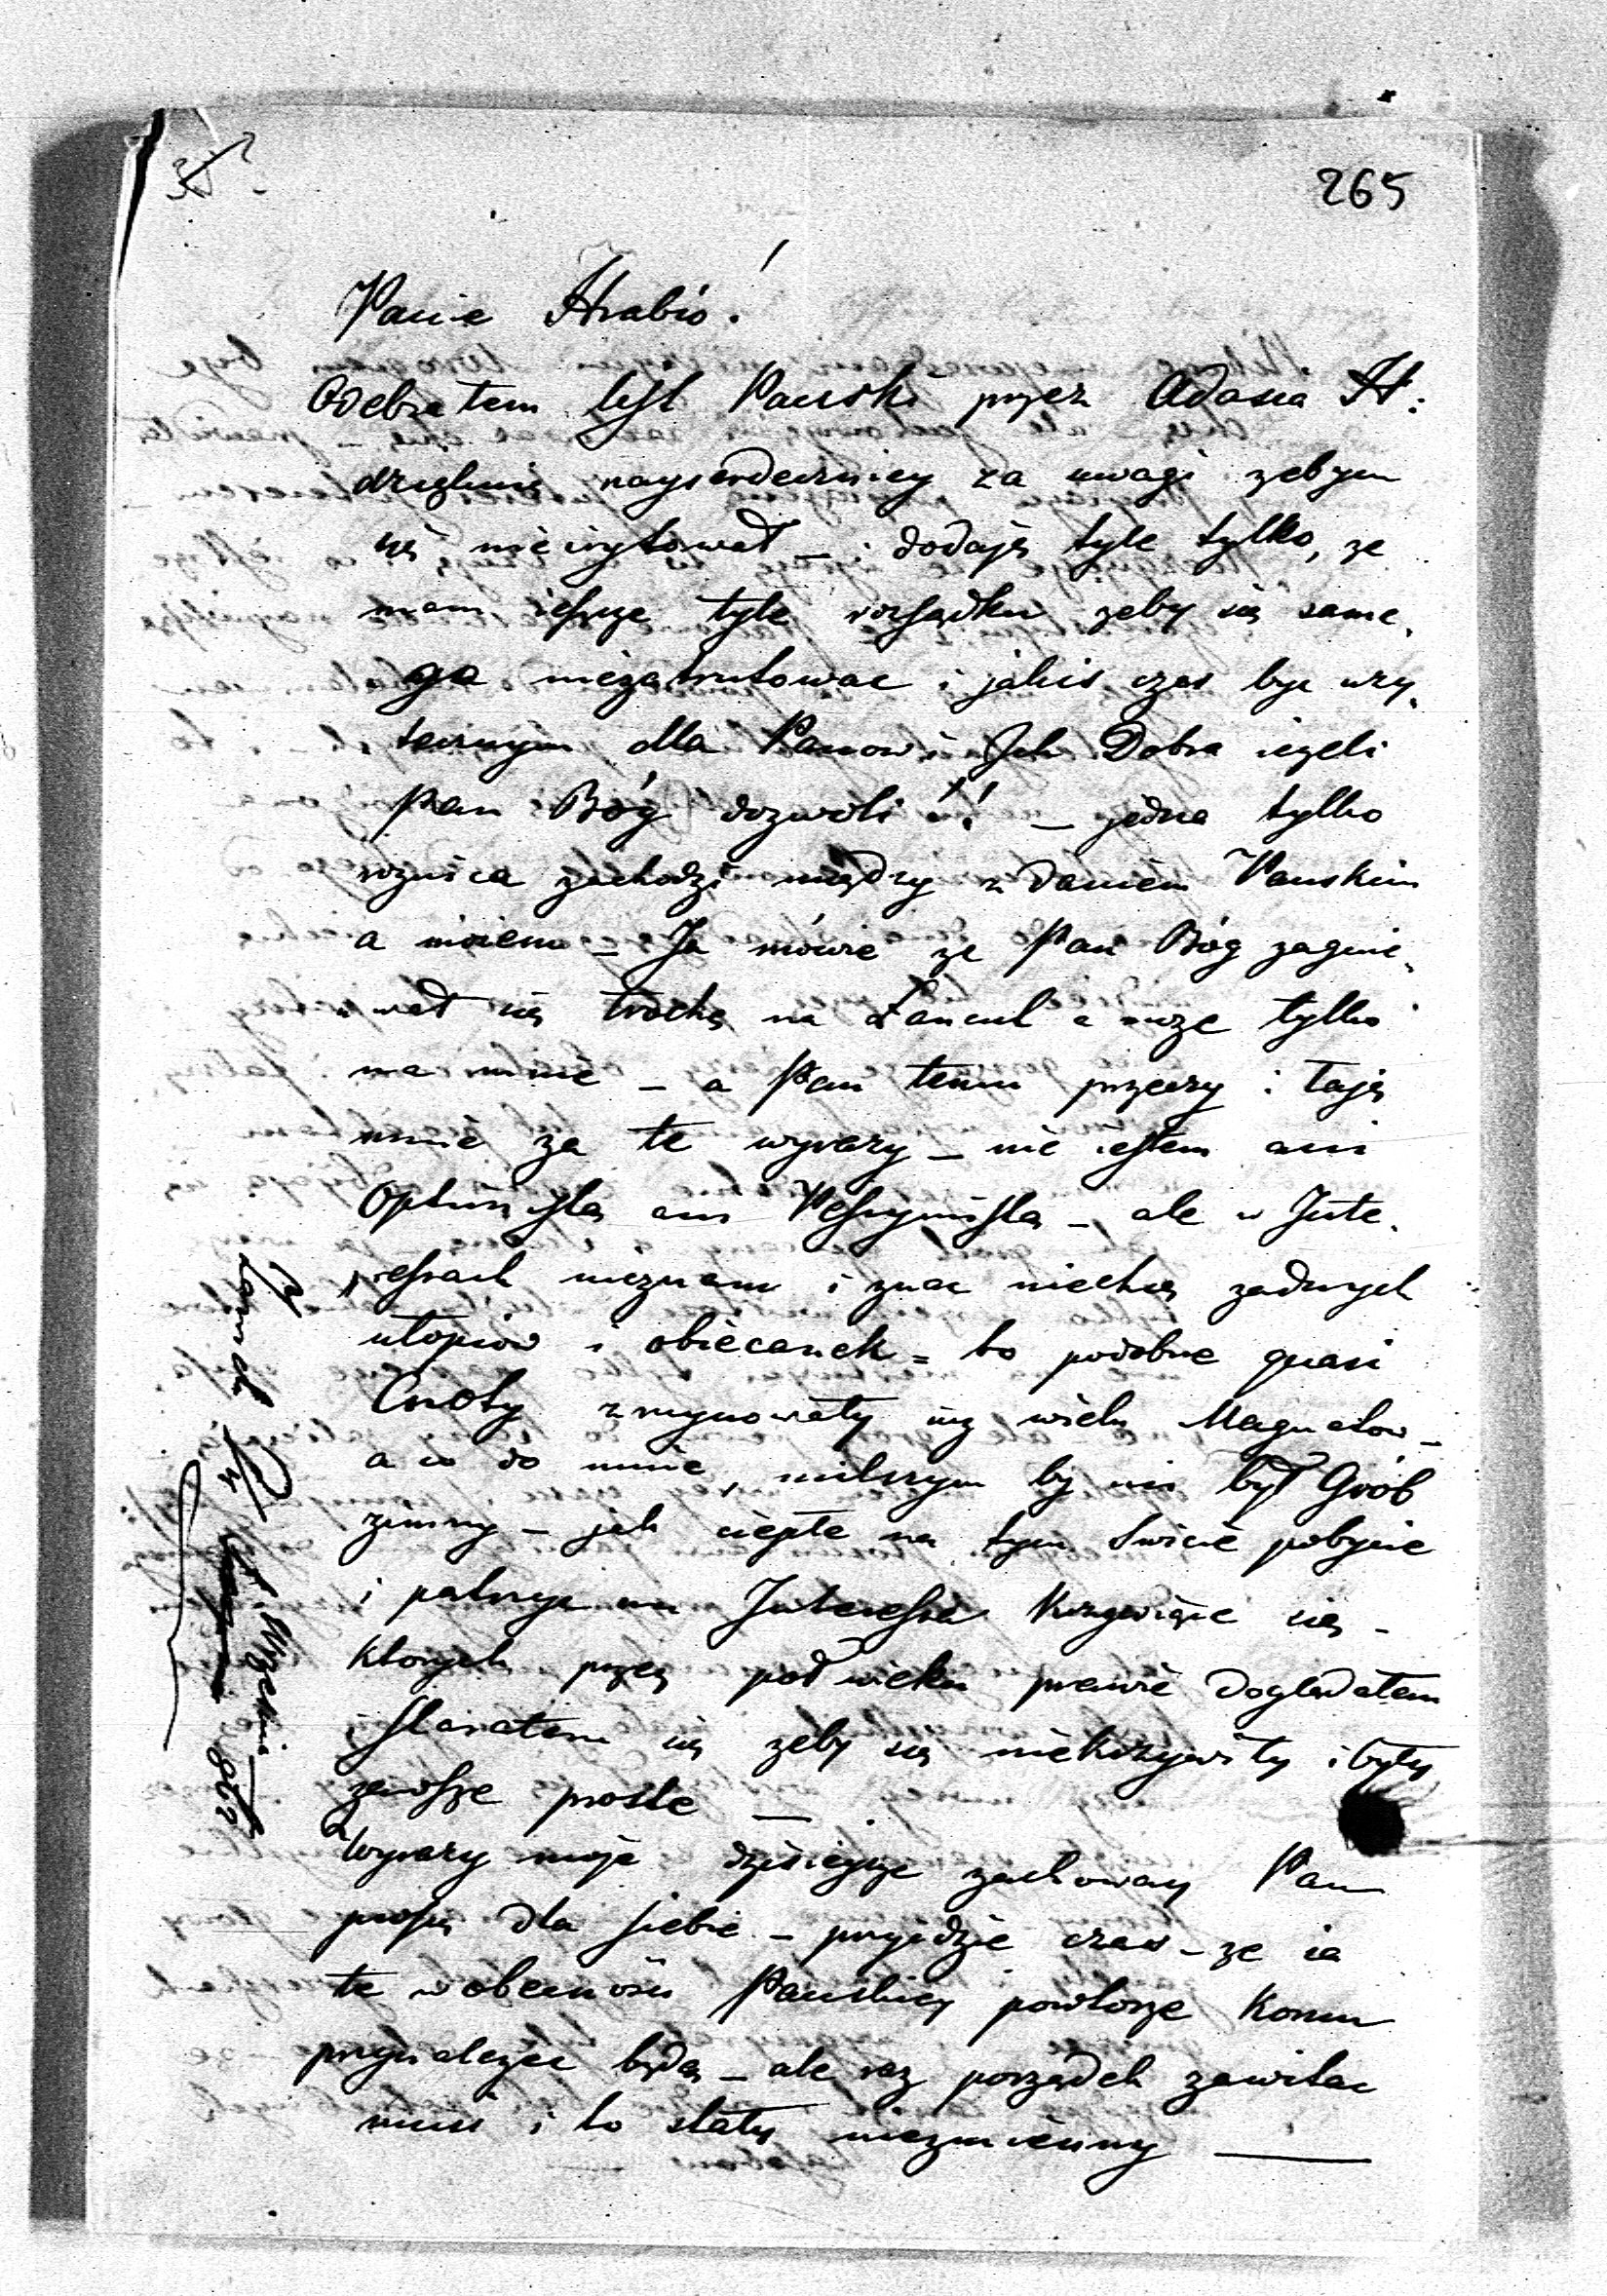 265
Panie Hrabio!
Odebrałem list Pański przez Adasia H:
dziękuię nayserdeczniey za uwagi zebym
się nieirytował _ dodaję tyle tylko, ze
mam ieszcze tyle rozsądku zeby się same,
go niezatrutowac i jakis czas byc uzy,
tecznym dla Panow i Ich Dobra iezeli
Pan Bóg dozwoli!! _ jedna tylko
roznica zachodzi między zdaniem Panskim
a moiem _ Ja mówie ze Pan Bóg zagnie,
wał się trochę na Łancut a moze tylko
na mnie _ a Pan temu przeczy i łaję
mnie za te wyrazy _ nie iestem ani
Optimistą ani Pessymistą _ ale w Inte,
ressach nieznam i znac niechcę zadnych
utopiow i obiecanek = bo podobne quasi
Cnoty zruynowały iuz wielu Magnatow _
a co do mnie, milszym by mi był Grób
zimny _ jak ciepłe na tym swiecie pobycie
i patrzyc na Interessa krzywiące się _
ktorych przez poł wieku prawie doglądałem
i starałem się zeby się niekrzywiły i były
zawsze proste _
Wyrazy moje dzisieysze zachoway Pan
proszę dla siebie _ przyidzie czas _ ze ia
te w obecnosci Panskiey powtorze komu
przynalezec będą _ ale raz porządek zawitac
musi i to stały niezmienny _
Łancut Września 862